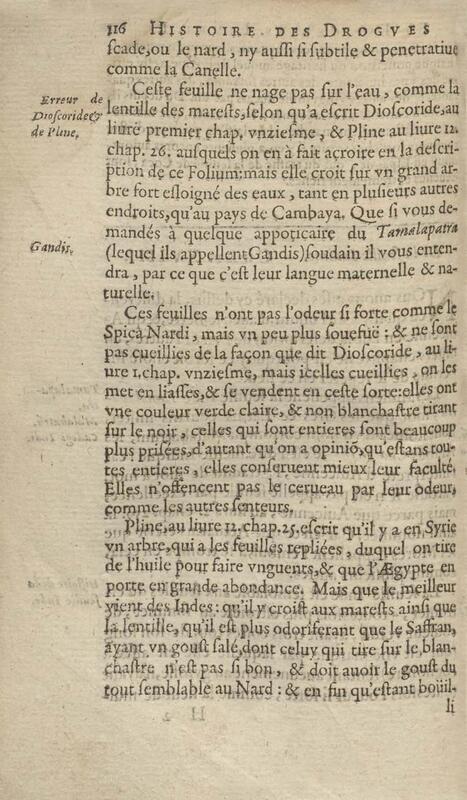 116 HISTOIRE DES DROGVES
scade,ou le nard, ny aussi si subtile & penetratiue
comme la Canelle.
Ceste feuille ne nage pas sur l'eau, comme la
Erreur de
Dioscoride &
de Pline,
lentille des marests,selon qu'a escrit Dioscoride,au
liure premier chap. vnziesme, & Pline au liure 12.
chap. 26. ausquels on en à fait acroire en la descri-
ption de ce Folium:mais elle croit sur vn grand ar-
bre fort esloigné des eaux, tant en plusieurs autres
endroits,qu'au pays de Cambaya. Que si vous de-
mandés à quelque appoticaire du Tamalapatra
Gandis,
(lequel ils appellent Gandis)soudain il vous enten-
dra, par ce que c'est leur langue maternelle & na-
turelle.
Ces feuilles n'ont pas l'odeur si forte comme le
Spica Nardi, mais vn peu plus souefue : & ne sont
pas cueillies de la façon que dit Dioscoride, au li-
ure 1.chap. vnziesme, mais icelles cueillies, on les
met en liasses,& se vendent en ceste sorte:elles ont
vne couleur verde claire, & non blanchastre tirant
sur le noir, celles qui sont entieres sont beaucoup
plus prisées,d'autant qu'on a opiniõ,qu'estans tou-
tes entieres, elles conseruent mieux leur faculté.
Elles n'offencent pas le cerueau par leur odeur,
comme les autres senteurs.
Pline,au liure 12.chap.25.escrit qu'il y a en Syrie
vn arbre,qui a les feuilles repliées, duquel on tire
de l'huile pour faire vnguents,& que l'Ægypte en
porte en grande abondance. Mais que le meilleur
vient des Indes : qu'il y croist aux marests ainsi que
la lentille, qu'il est plus odoriferant que le Saffran,
ayant vn goust salé,dont celuy qui tire sur le blan-
chastre n'est pas si bon, & doit auoir le goust du
tout semblable au Nard : & en fin qu'estant boüil-
li